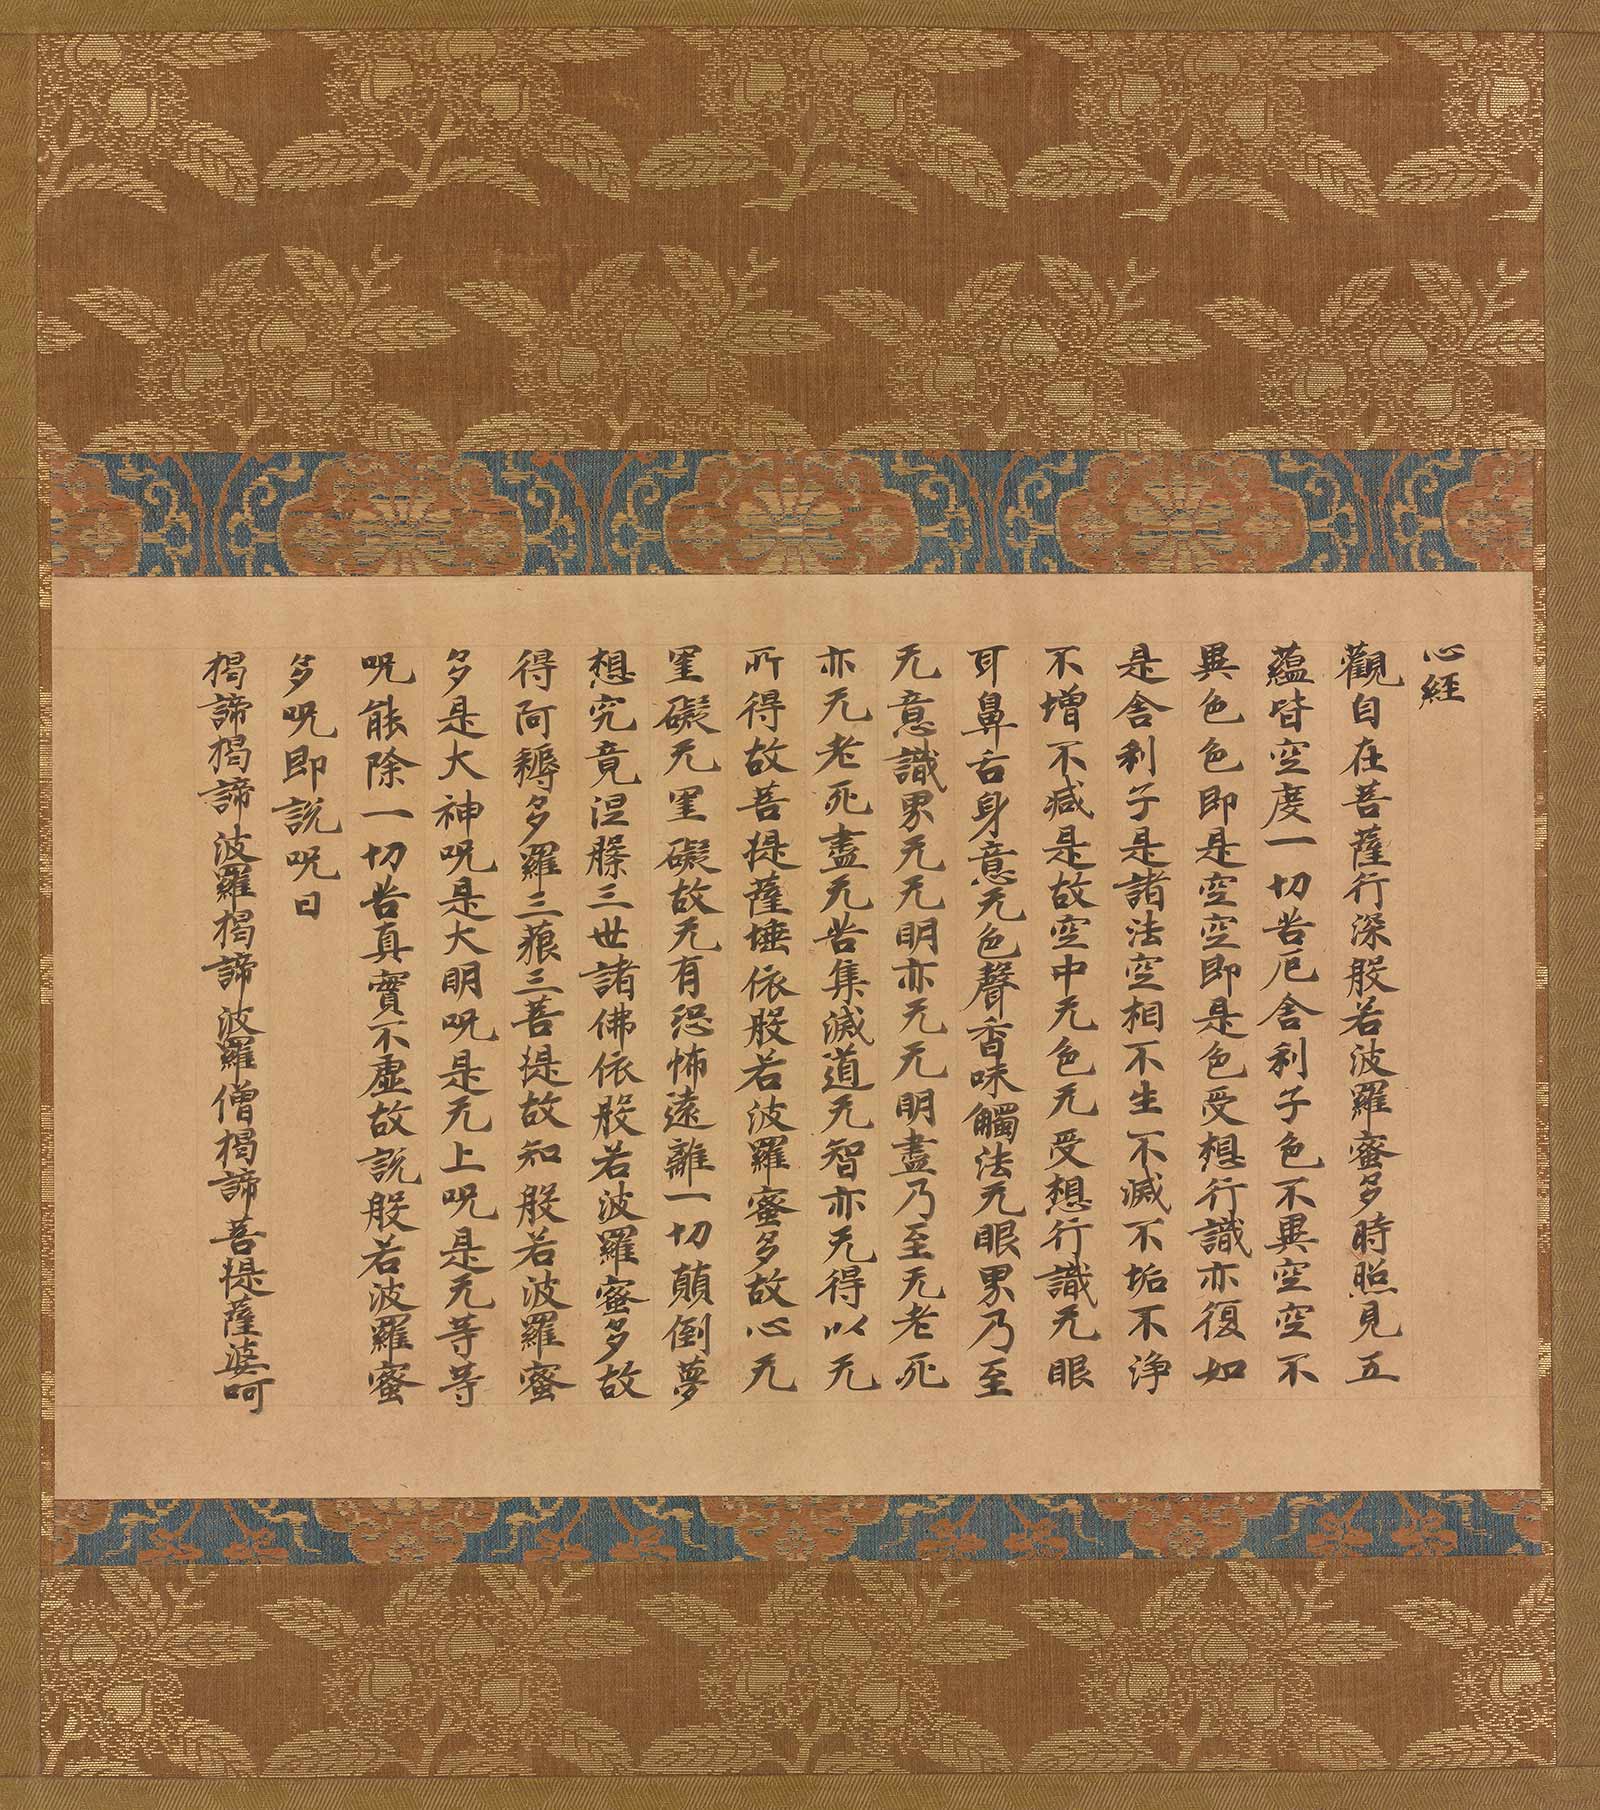 心経
觀自在菩薩行深般若波羅蜜多時照見五
蘊皆空度一切苦厄舍利子色不異空空不
異色色即是空空即是色受想行識亦復如
是舍利子是諸法空相不生不滅不垢不浄
不增不减是故空中无色无受想行識无眼
耳鼻舌身意无色聲香味觸法无眼界乃至
无意識界无无明亦无无明盡乃至无老死
亦无老死盡无苦集滅道无智亦无得以无
所得故菩提薩埵依般若波羅蜜多故心无
罣礙无罣礙故无有恐怖遠離一切顛倒夢
想究竟涅槃三世諸佛依般若波羅蜜多故
得阿耨多羅三藐三菩提故知般若波羅蜜
多是大神呪是大明呪是无上呪是无等等
呪能除一切苦真實不虚故説般若波羅蜜
多呪即説呪曰
揭諦揭諦波羅揭諦波羅僧揭諦菩提薩婆呵